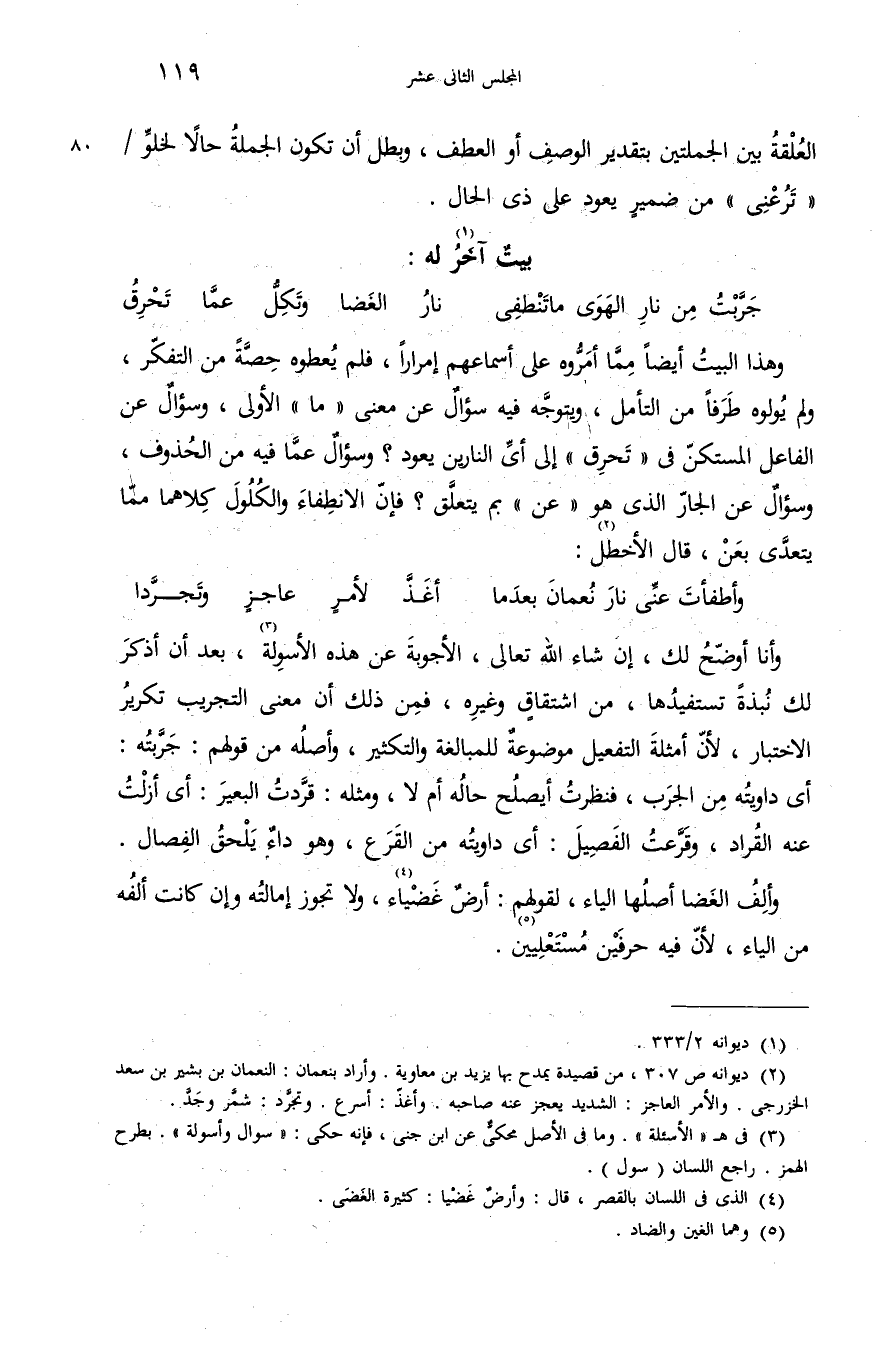 المجلس الثانى عشر ١١٩
العُلْقةُ بين الجملتين بتقدير الوصفِ أو العطف ، وبطل أن تكون الجملةُ حالًا لخلوِّ / ٨٠
« تَرُعْنِى » من ضميرٍ يعود على ذى الحال .
بيتٌ آخَرُ له (١) :
جَرَّبْتُ مِن نارِ الهَوَى ماتَنْطفِى نارُ الغَضا وتَكِلُّ عمَّا تَحْرِقُ
وهذا البيتُ أيضاً مِمَّا أمَرُّوه على أسماعهم إمراراً ، فلم يُعطوه حِصَّةً من التفكّر ،
ولم يُولوه طَرَفاً من التأمل ، ويتوجَّه فيه سؤالٌ عن معنى « ما » الأولى ، وسؤالٌ عن
الفاعل المستكنّ فى « تَحرِق » إلى أىِّ النارين يعود ؟ وسؤالٌ عمَّا فيه من الحُذوف ،
وسؤالٌ عن الجارّ الذى هو « عن » بم يتعلَّق ؟ فإنّ الانطِفاءَ والكُلُولَ كِلاهما ممَّا
يتعدَّى بعَنْ ، قال الأخطل (٢) :
وأطفأتَ عنِّى نارَ نُعمانَ بعدَما أغَذَّ لأمرٍ عاجـزٍ وتَجـــرَّدا
وأنا أوضّحُ لك ، إن شاء الله تعالى ، الأجوبةَ عن هذه الأسوِلة (٣) ، بعد أن أذكرَ
لك نُبذةً تستفيدُها ، من اشتقاقٍ وغيرِه ، فمِن ذلك أن معنى التجريب تكريرُ
الاختبار ، لأنّ أمثلةَ التفعيل موضوعةٌ للمبالغة والتكثير ، وأصلُه من قولهم : جَرَّبتُه :
أى داويتُه مِن الجرَب ، فنظرتُ أيصلُح حالُه أم لا ، ومثله : قرَّدتُ البعيرَ : أى أزلْتُ
عنه القُراد ، وقَرَّعتُ الفَصِيلَ : أى داويتُه من القَرَع ، وهو داءٌ يَلْحقُ الفِصال .
وألِفُ الغَضا أصلُها الياء ، لقولهم : أرضٌ غَضْياء (٤) ، ولا تجوز إمالتُه وإن كانت ألفُه
من الياء ، لأنّ فيه حرفَيْن مُسْتَعْلِيين (٥) .
(١) ديوانه ٣٣٣/٢ .
(٢) ديوانه ص ٣٠٧ ، من قصيدة يمدح بها يزيد بن معاوية . وأراد بنعمان : النعمان بن بشير بن سعد
الخزرجى . والأمر العاجز : الشديد يعجز عنه صاحبه . وأغذّ : أسرع . وتجرَّد : شمَّر وجَدَّ .
(٣) فى هـ « الأسئلة » . وما فى الأصل محكىٌّ عن ابن جنى ، فإنه حكى : « سوال وأسولة » . بطرح
الهمز . راجع اللسان ( سول ) .
(٤) الذى فى اللسان بالقصر ، قال : وأرضٌ غَضْيا : كثيرة الغَضَى .
(٥) وهما الغين والضاد .